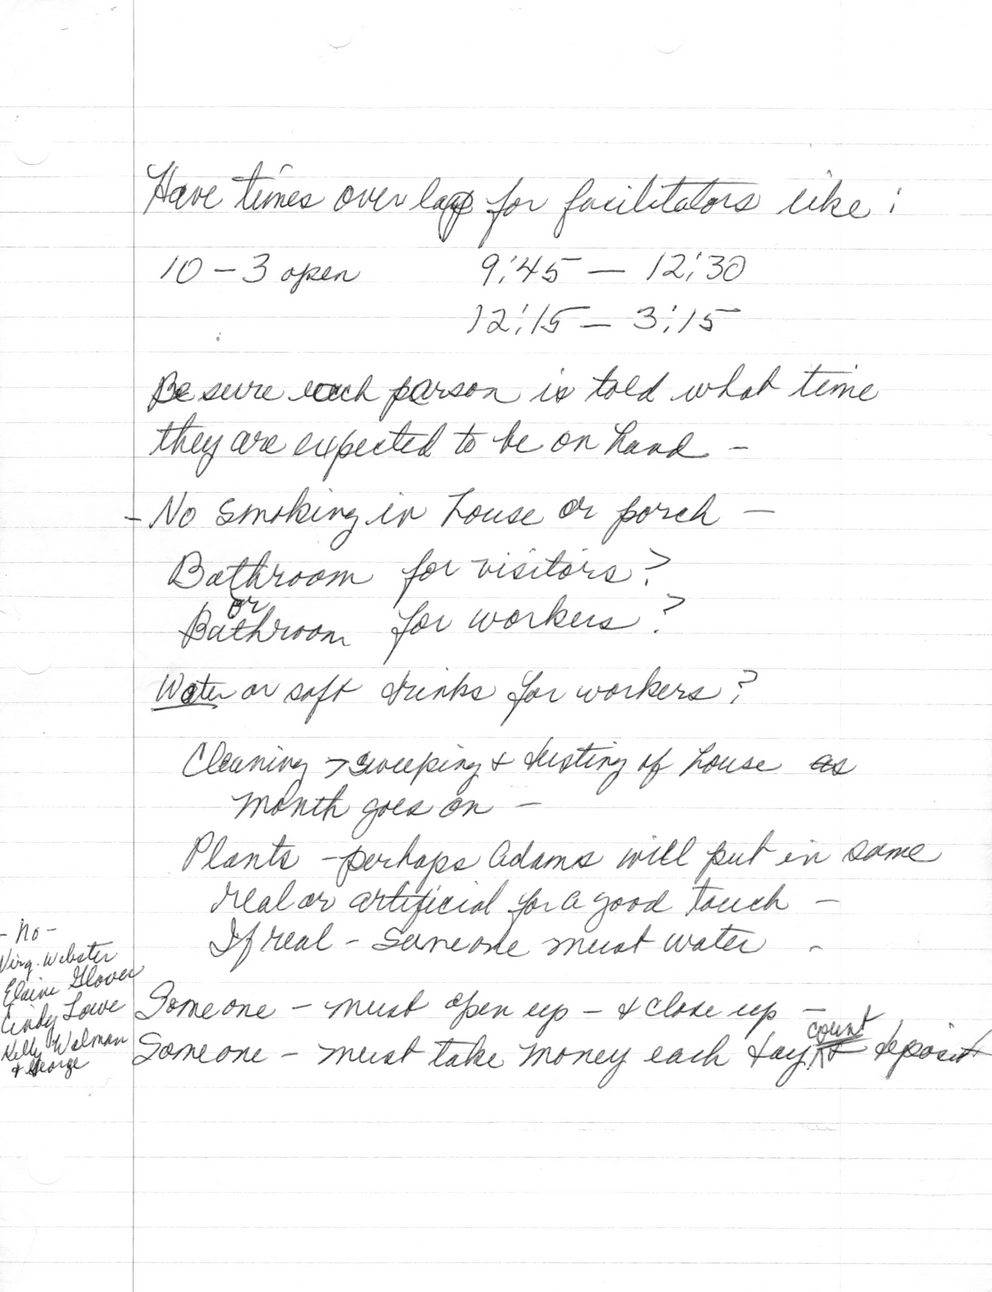 Have times over lap for facilitators like:
10 - 3 open 9:45 — 12:30
12:15 — 3:15
Be sure each person is told what time
they are expected to be on hand -
- No smoking in house or porch -
Bathroom for visitors?
or
Bathroom for workers?
Water or soft drinks for workers?
Cleaning > sweeping & dusting of house as
month goes on -
Plants - perhaps Adams will put in some
real or artificial for a good touch -
If real - Someone must water -
- No -
Virg. Webster
Elaine Glover
Cindy Lowe
Kelly Walman
& George
Someone - must open up - & close up -
Someone - must take money each day, count & deposit